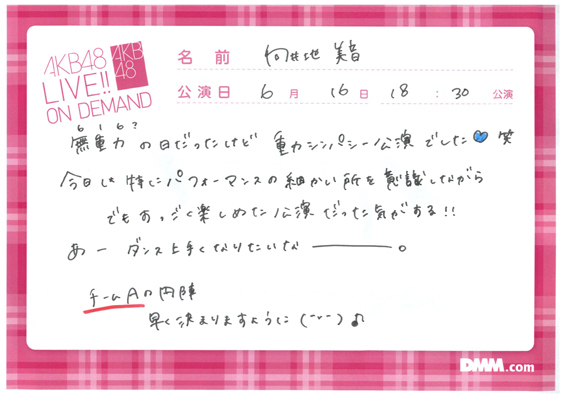 AKB48
LIVE!!
ON DEMAND
AKB
48
名前 向井地 美音
公演日 6月 16日 18:30 公演
6 1 6?
無重力の日だったけど 重力シンパシー公演でした💙 笑
今日は特にパフォーマンスの細かい所を意識しながら
でもすっごく楽しめた公演だった気がする!!
あー ダンス上手くなりたいな ―――。
チームAの円陣
早く決まりますように(ーｰー)♪
DMM.com